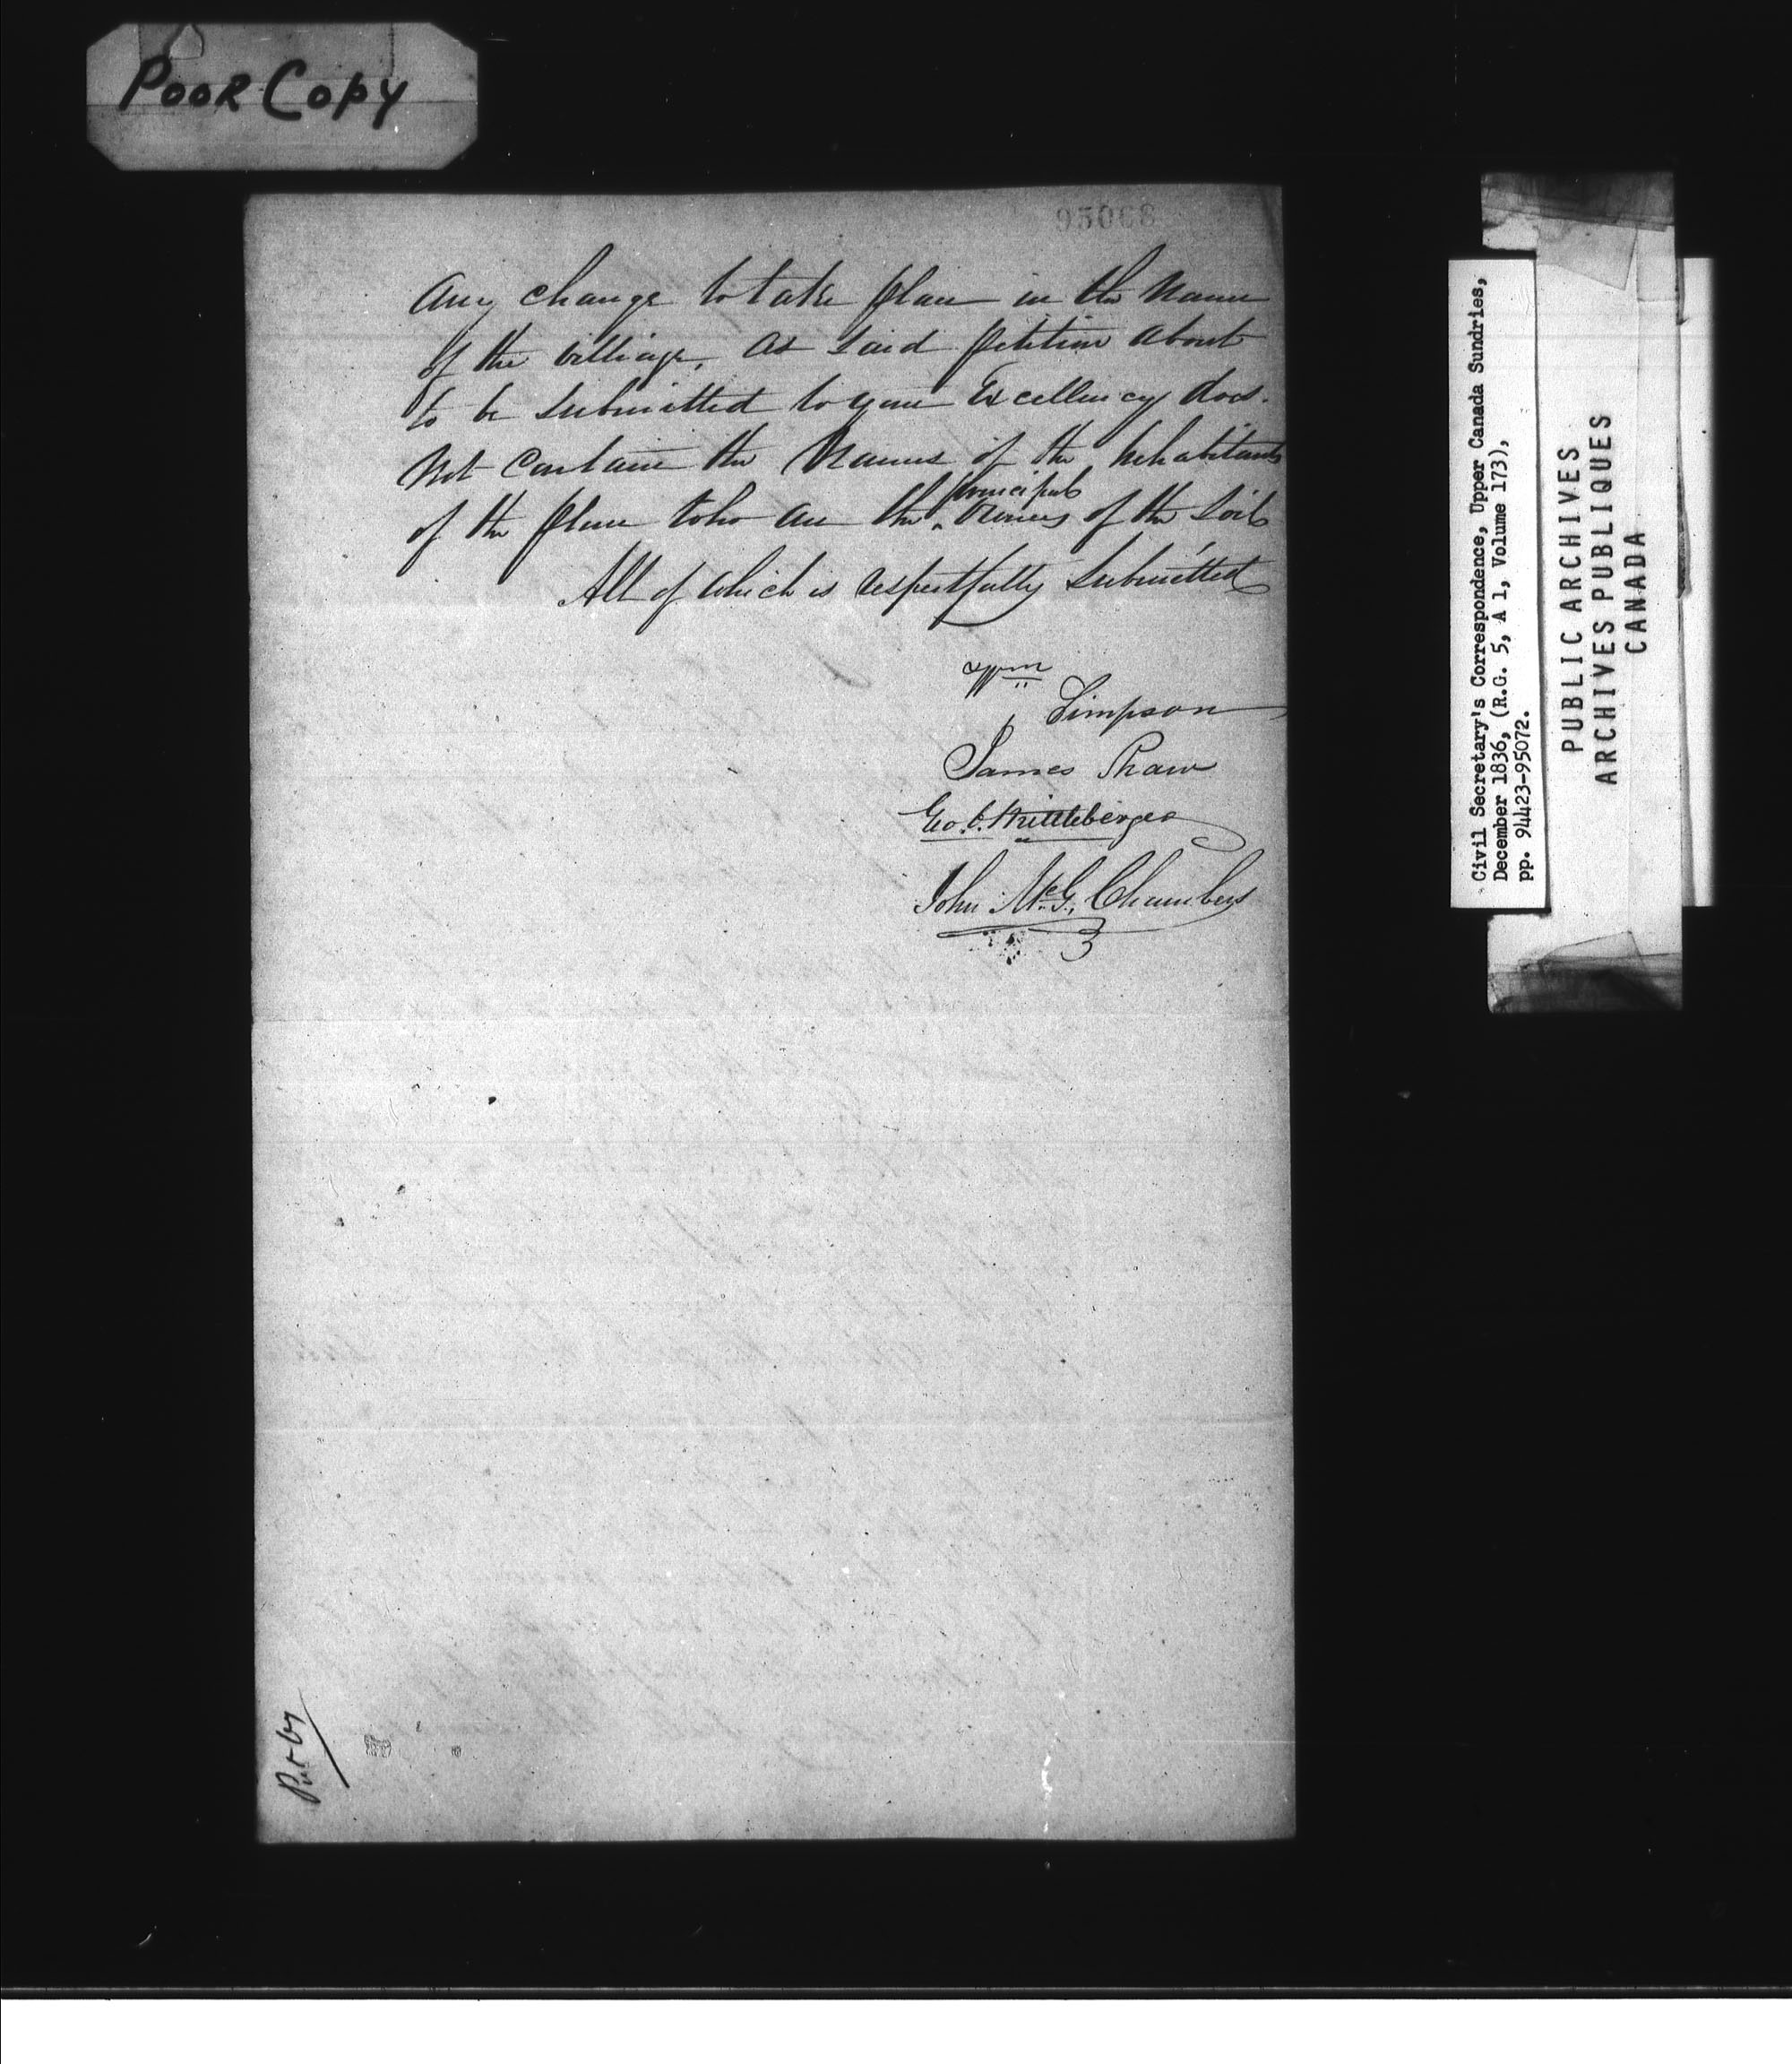 POOR COPY
95068
Any change to take place in the Name
of the Village, as said petition about
to be submitted to your Excellency does
Not Contain the Names of the Inhabitants
of the place who are the principal Owners of the Soil
All of which is respectfully submitted
Wm Simpson
James Shaw
Geo. C. Mittleberger
John McG. Chambers
Put by
Civil Secretary's Correspondence, Upper Canada Sundries,
December 1836, (R.G. 5, A 1, Volume 173),
pp. 94423-95072.
PUBLIC ARCHIVES
ARCHIVES PUBLIQUES
CANADA